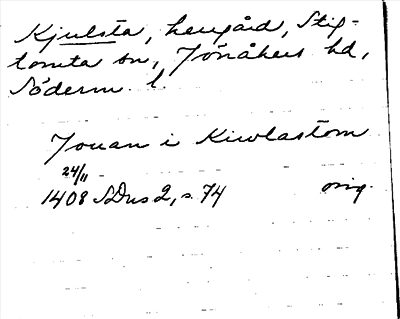 Kjulsta, herrgård, Stig-
tomta sn, Jönåkers hd,
Söderm l.
Jouan i Kiwlastom
24/11
1408 SDns 2, s. 74 orig.